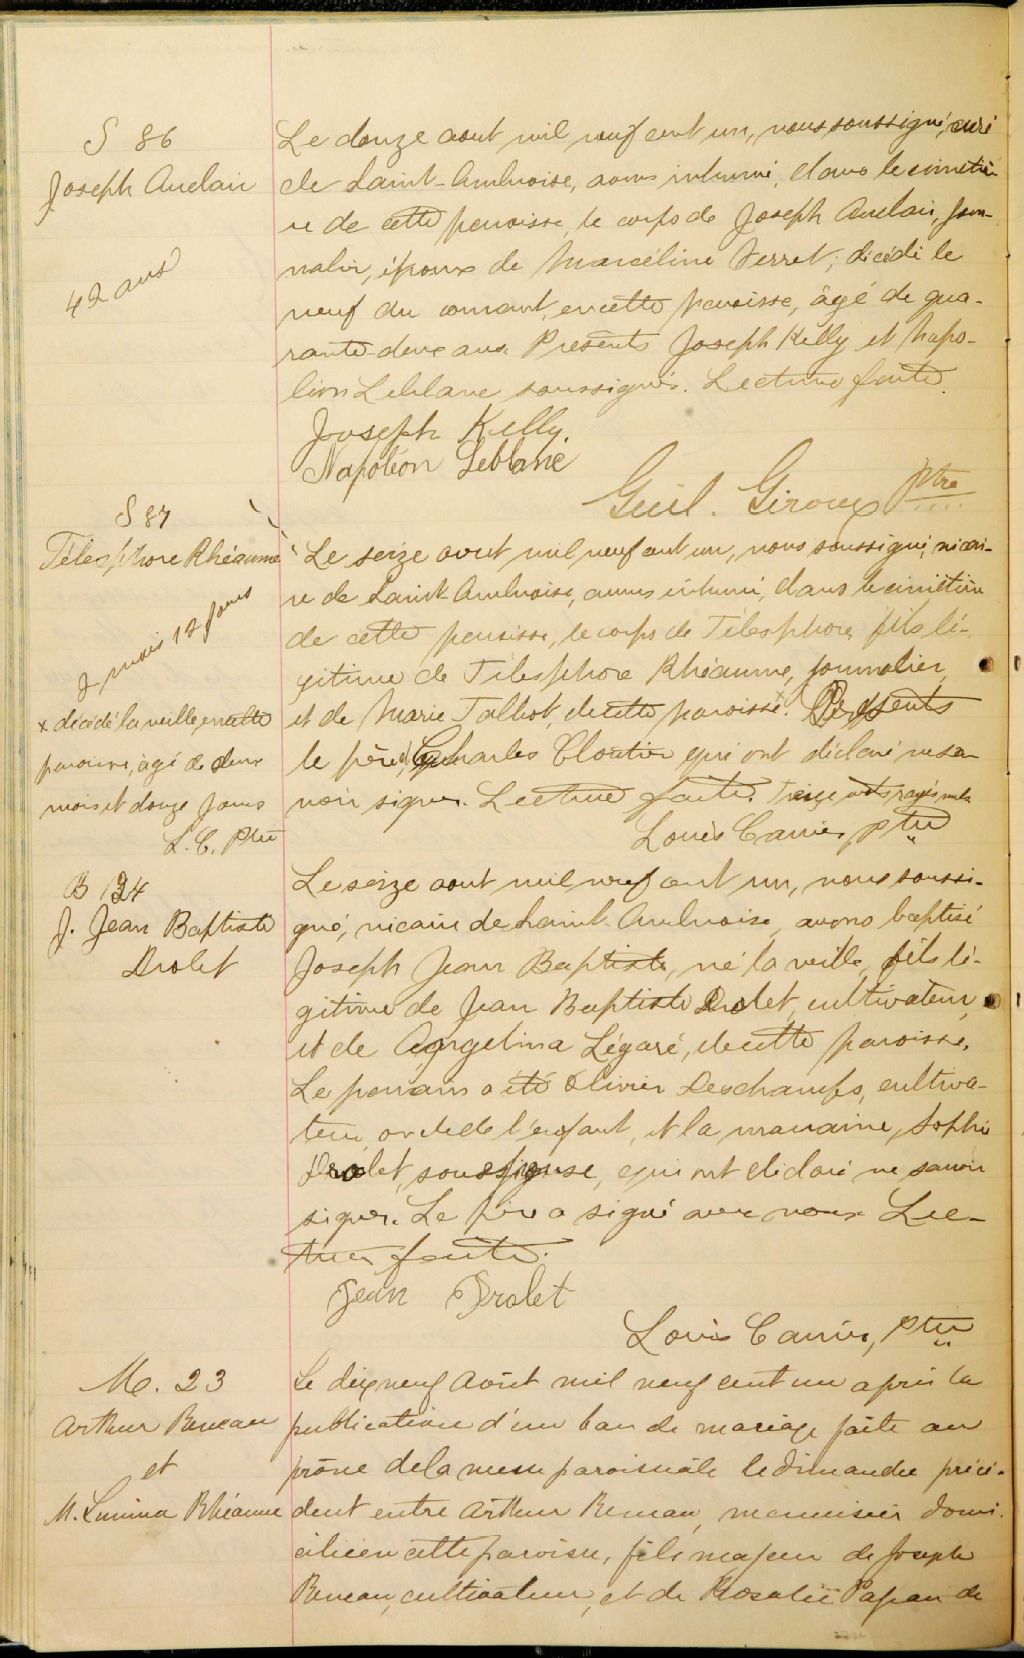 S 86
Joseph Auclair
42 ans
Le douze aout mil neuf cent un, nous soussigné, curé
de Saint-Ambroise, avons inhumé, dans le cimetiè-
re de cette paroisse, le corps de Joseph Auclair, jour-
nalier, époux de Marcéline Verret, décédé le
neuf du courant, en cette paroisse, âgé de qua-
rante-deux ans. Présents Joseph Kelly et Napo-
léon Leblanc soussignés. Lecture faite.
Joseph Kelly.
Napoléon Leblanc
Guil. Giroux Ptre
S 87
Télesphore Rhéaume
2 mois 12 jours
Le seize aout mil neuf cent un, nous soussigné, vicai-
re de Saint-Ambroise, avons inhumé, dans le cimetière
de cette paroisse, le corps de Télesphore, fils lé-
gitime de Télesphore Rhéaume, journalier,
et de Marie Talbot, de cette paroisse. Présents
le père, Charles Cloutier qui ont déclaré ne sa-
voir signer. Lecture faite. mots rayés nuls
Louis Carrier, ptre
x décédé la veille, en cette
paroisse, âgé de deux
mois et douze jours
L. C. Ptre
B 124
J. Jean Baptiste
Drolet
Le seize aout mil neuf cent un, nous soussi-
gné, vicaire de Saint-Ambroise, avons baptisé
Joseph Jean Baptiste, né la veille, fils lé-
gitime de Jean Baptiste Drolet, cultivateur,
et de Angelina Légaré, de cette paroisse.
Le parrain a été Olivier Deschamps, cultiva-
teur, oncle de l'enfant, et la marraine, Sophie
Drolet, son épouse, qui ont déclaré ne savoir
signer. Le père a signé avec nous. Lec-
ture faite.
Jean Drolet
Louis Carrier, Ptre
M. 23
Arthur Beneau
et
M. Lumina Rhéaume
Le dix neuf Août mil neuf cent un après la
publication d'un ban de mariage faite au
prône de la messe paroissiale le dimanche précé-
dent entre Arthur Beneau, menuisier domi-
cilié en cette paroisse, fils majeur de Joseph
Beneau, cultivateur, et de Rosalie Papan de